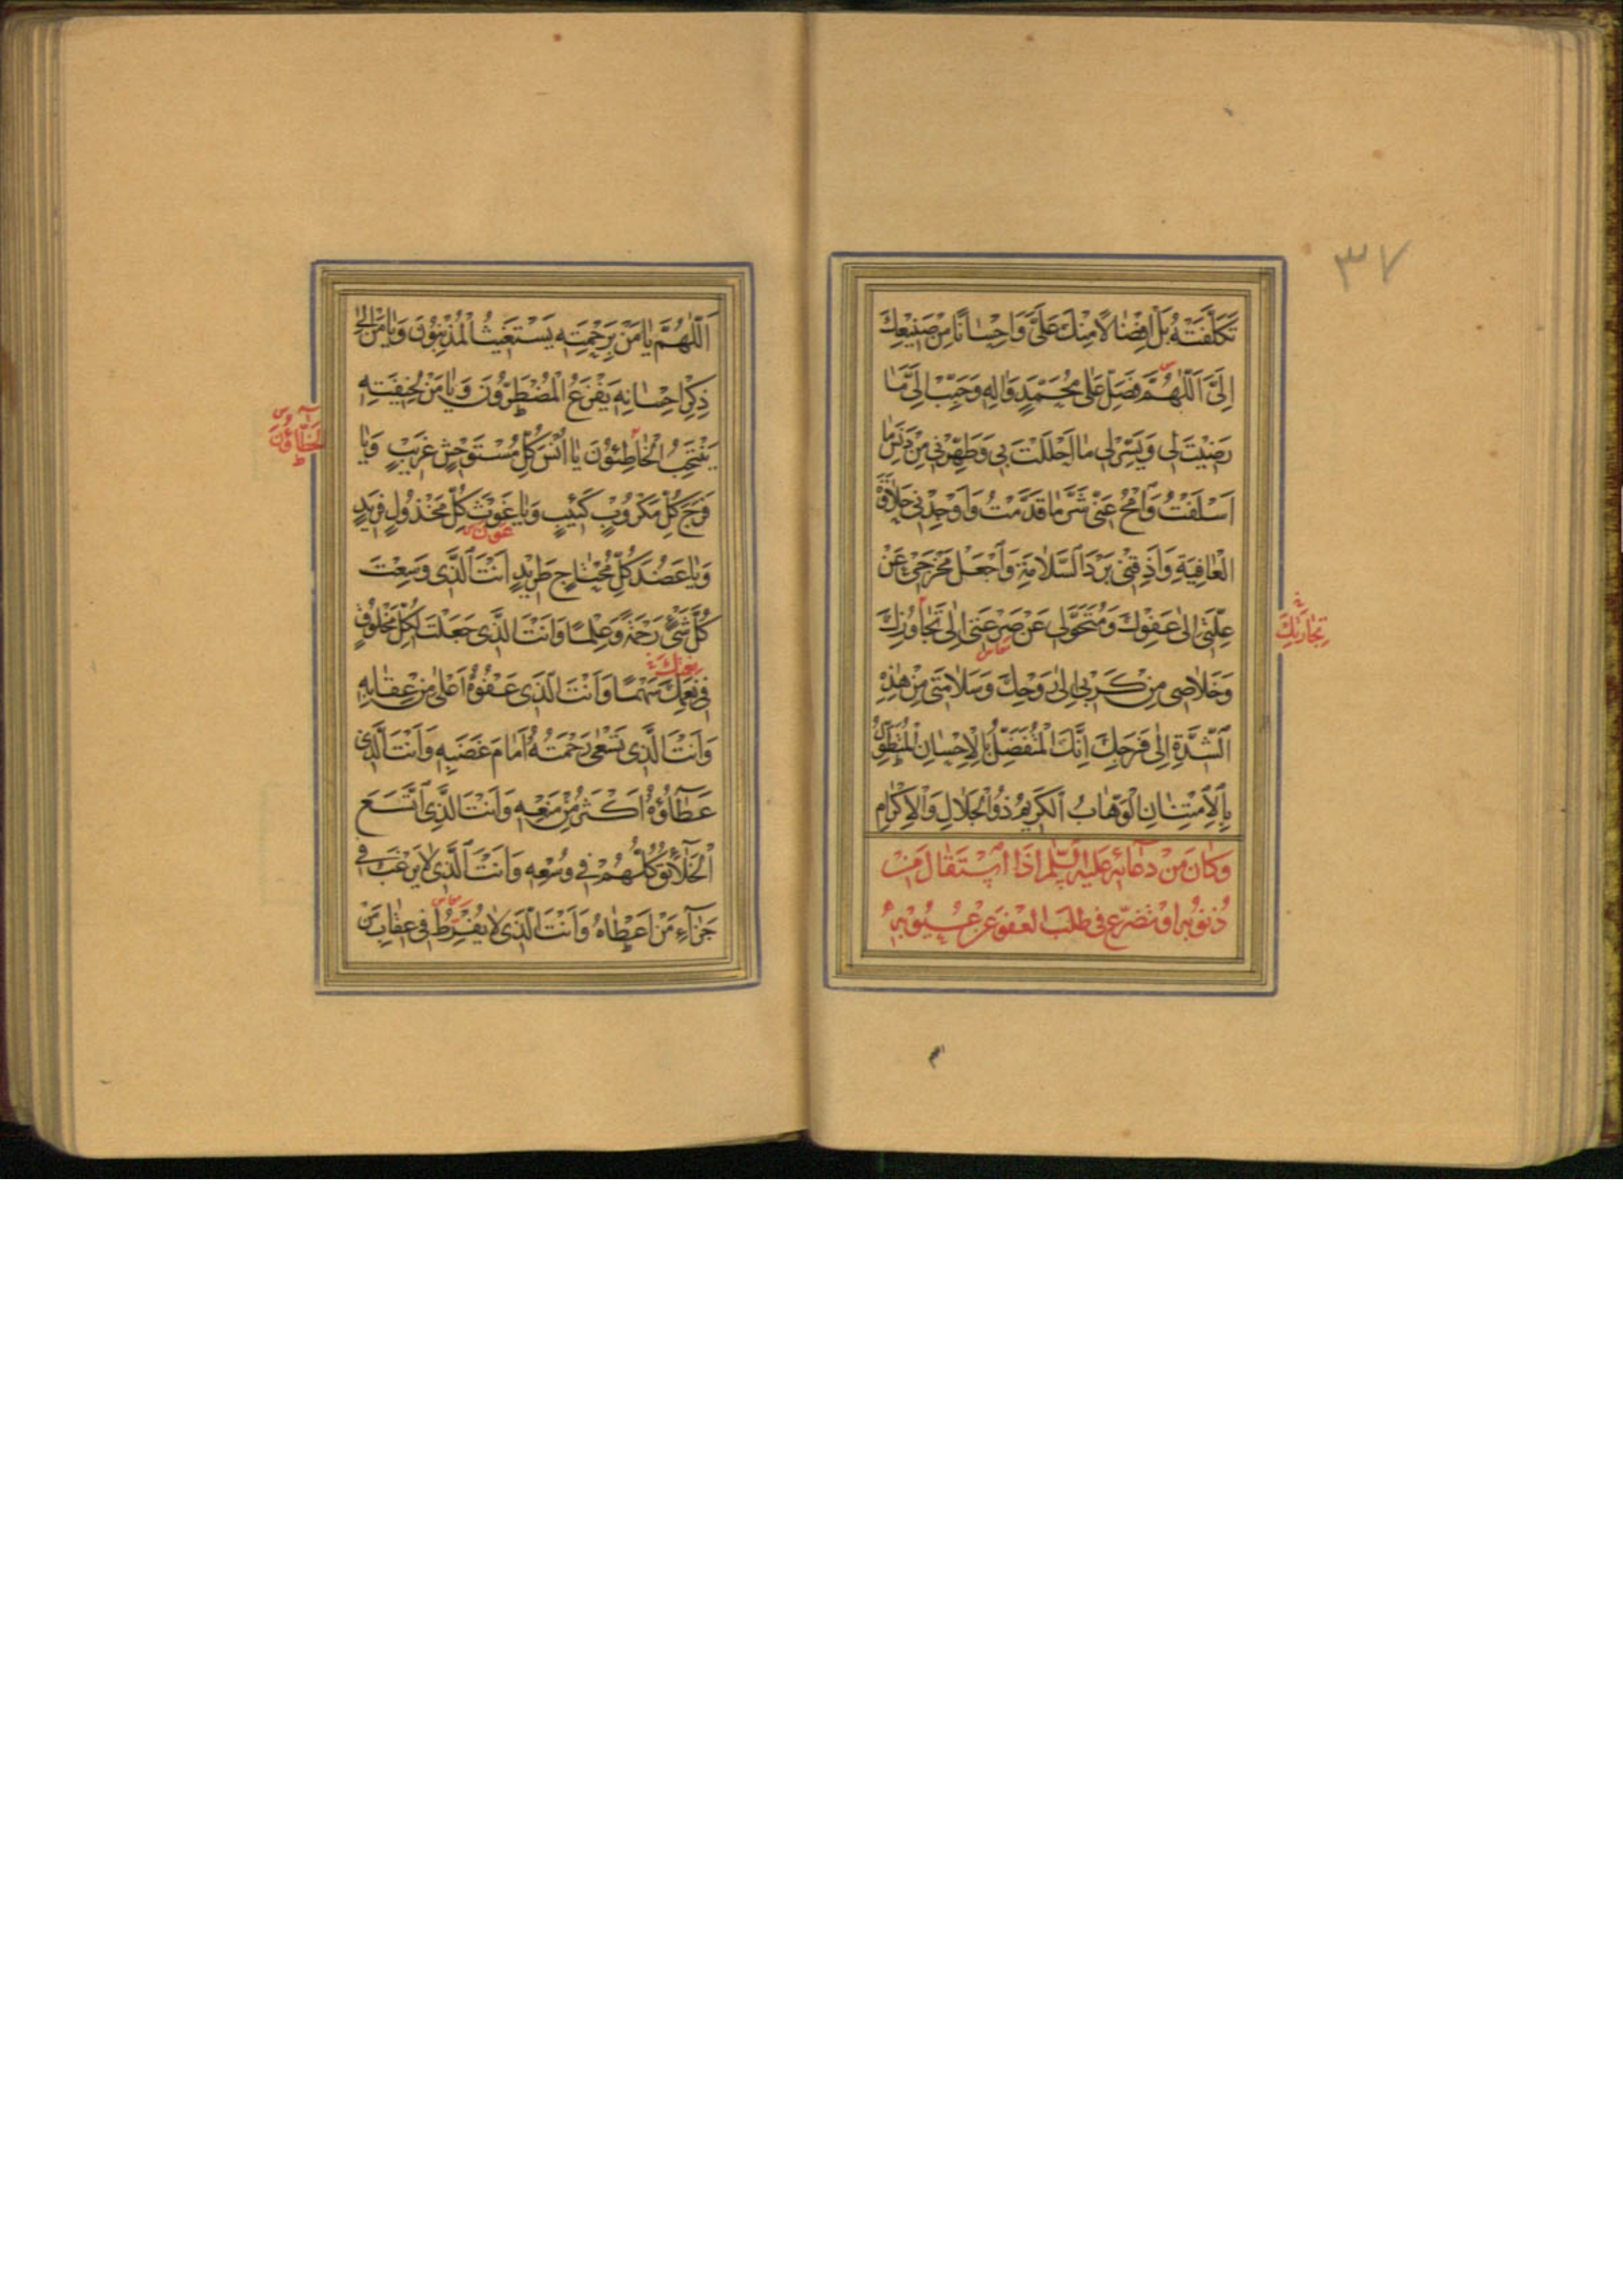 ٣٧
تَكَلَّفَتْهُ بَلْ اِفْضٰالًا مِنْكَ عَلَىَّ وَاِحْسٰانًا مِنْ صَنيعِكَ
اِلَىَّ اَللّٰهُمَّ فَصَلِّ عَلٰى مُحَمَّدٍ وَاٰلِهِ وَحَبِّبْ اِلَىَّ مٰا
رَضيْتَ لى وَيَسِّرْ لى مٰا اَحْلَلْتَ بى وَطَهِّرْنى مِنْ دَنَسِ مٰا
اَسْلَفْتُ وَامْحُ عَنّى شَرَّ مٰا قَدَّمْتُ وَاَوْجِدْنى حَلاٰوَةَ
الْعٰافِيَةِ وَاَذِقْنى بَرْدَ السَّلاٰمَةِ وَاجْعَلْ مَخْرَجى عَنْ
عِلَّتى اِلٰى عَفْوِكَ وَمُتَحَوَّلى عَنْ صَرْعَتى اِلٰى تَجٰاوُزِكَ
وَخَلاٰصى مِنْ كَرْبى اِلٰى رَوْحِكَ وَسَلاٰمَتى مِنْ هٰذِهِ
الشِّدَّةِ اِلٰى فَرَجِكَ اِنَّكَ الْمُتَفَضِّلُ بِالْاِحْسٰانِ الْمُتَطَوِّلُ
بِالْاِمْتِنٰانِ الْوَهّٰابُ الْكَريمُ ذُو الْجَلاٰلِ وَالْاِكْرٰامِ
وَكٰانَ مِنْ دُعٰائِهِ عَلَيْهِ السَّلَم اِذَا اسْتَقٰالَ مِنْ
ذُنوُبِهِ اَوْ تَضَرَّعَ فى طَلَبِ الْعَفْوِ عَنْ عُيوُبِهِ
اَللّٰهُمَّ يٰا مَنْ بِرَحْمَتِهِ يَسْتَغيثُ الْمُذْنِبُونَ وَيٰا مَنْ اِلٰى
ذِكْرِ اِحْسٰانِهِ يَفْزَعُ الْمُضْطَرُّونَ وَيٰا مَنْ لِخيفَتِهِ
يَنْتَحِبُ الْخٰاطِئُونَ يٰا اُنْسَ كُلِّ مُسْتَوْحِشٍ غَريبٍ وَيٰا
الْخَطّٰاؤُنَ
فَرَجَ كُلِّ مَكْرُوبٍ كَئيبٍ وَيٰا غَوْثَ كُلِّ مَخْذُولٍ فَريدٍ
عَوْنَ
وَيٰا عَضُدَ كُلِّ مُحْتٰاجٍ طَريدٍ اَنْتَ الَّذى وَسِعْتَ
كُلَّ شَىْءٍ رَحْمَةً وَعِلْمًا وَاَنْتَ الَّذى جَعَلْتَ لِكُلِّ مَخْلُوقٍ
فى نِعَمِكَ سَهْمًا وَاَنْتَ الَّذى عَفْوُهُ اَعْلٰى مِنْ عِقٰابِهِ
وَاَنْتَ الَّذى تَسْعٰى رَحْمَتُهُ اَمٰامَ غَضَبِهِ وَاَنْتَ الَّذى
عَطٰآؤُهُ اَكْثَرُ مِنْ مَنْعِهِ وَاَنْتَ الَّذِى اتَّسَعَ
الْخَلآٰئِقُ كُلُّهُمْ فى وُسْعِهِ وَاَنْتَ الَّذى لاٰ يَرْغَبُ فى
جَزٰآءِ مَنْ اَعْطٰاهُ وَاَنْتَ الَّذى لاٰ يُفْرِطُ فى عِقٰابِ مَنْ